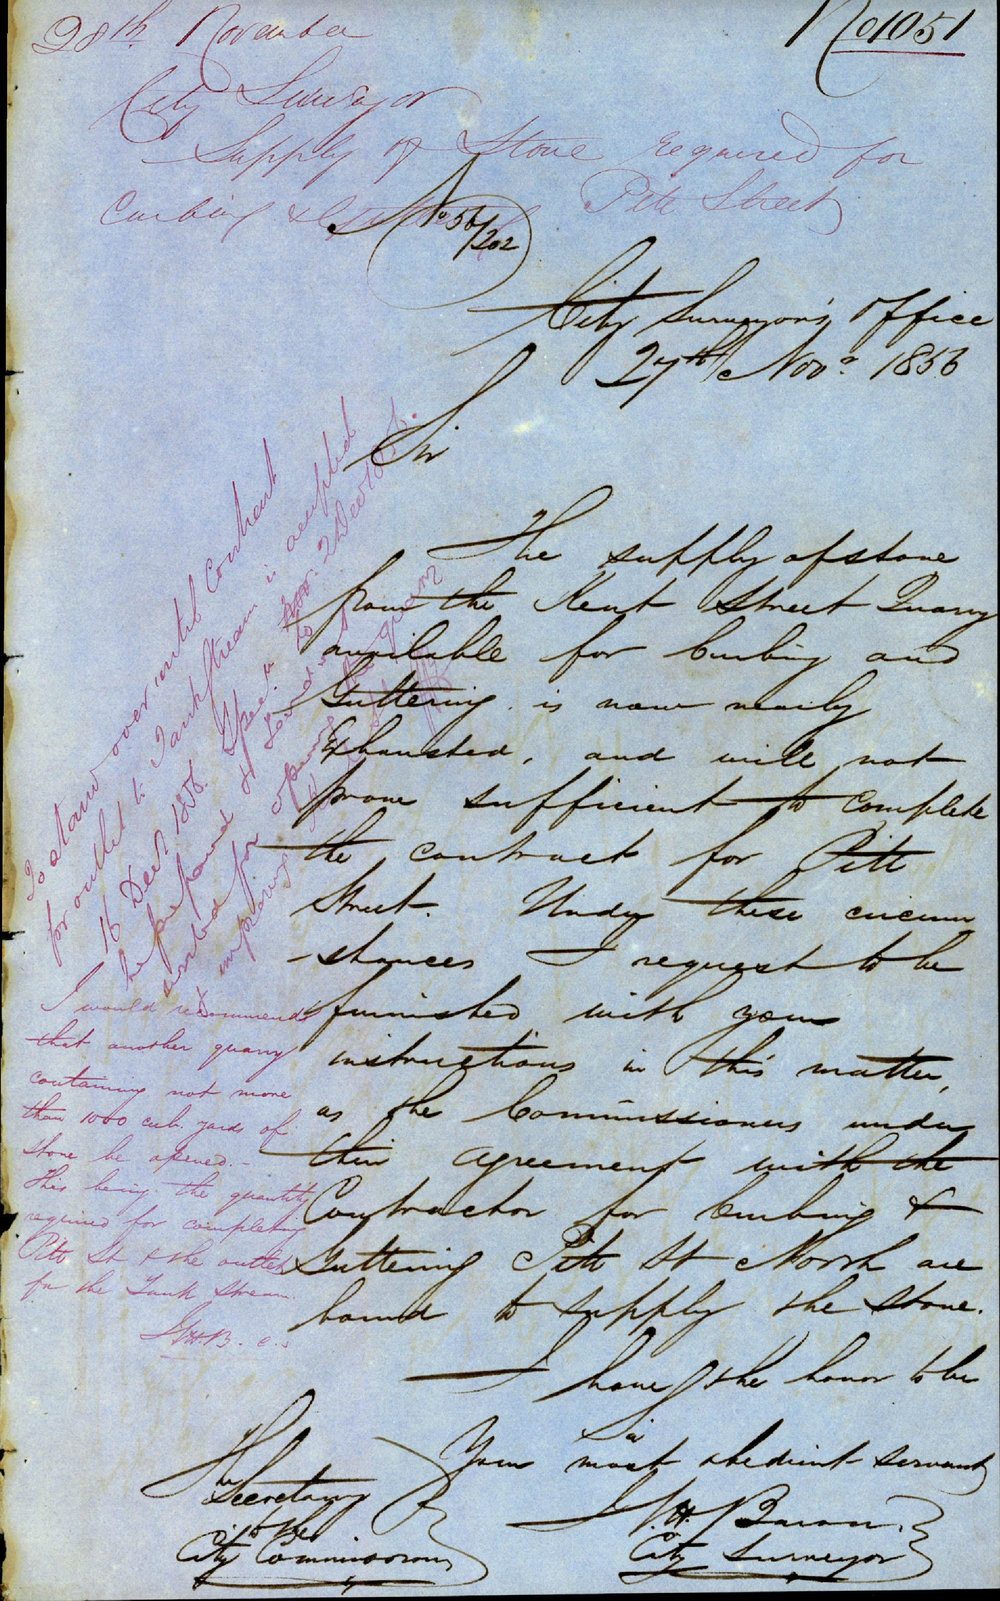 28th November
No 1051
City Surveyor
Supply of Stone required for
Curbing & Pitt Street
No 56/202
City Surveyor's Office
27th Novr 1856
Sir
The supply of stone
from the Kent Street Quarry
available for Curbing and
Guttering is now nearly
Exhausted, and will not
prove sufficient to complete
the contract for Pitt
Street. Under these circum
stances I request to be
furnished with your
instructions in this matter,
as the Commissioners under
their agreement with the
Contractor for Curbing &
Guttering Pitt St North are
bound to supply the stone.
I have the honor to be
Sir
Your most obedient servant
City Surveyor
The
Secretary
to the
City Commissioners
To stand over until Contract
for outlet to Tank Stream is accepted
16 Decr 1856.
be prepared &
for opening
I would recommend
that another quarry
containing not more
than 1000 cub. yards of
stone be opened.-
this being the quantity
required for completing
Pitt St & the outlet
for the Tank Stream.